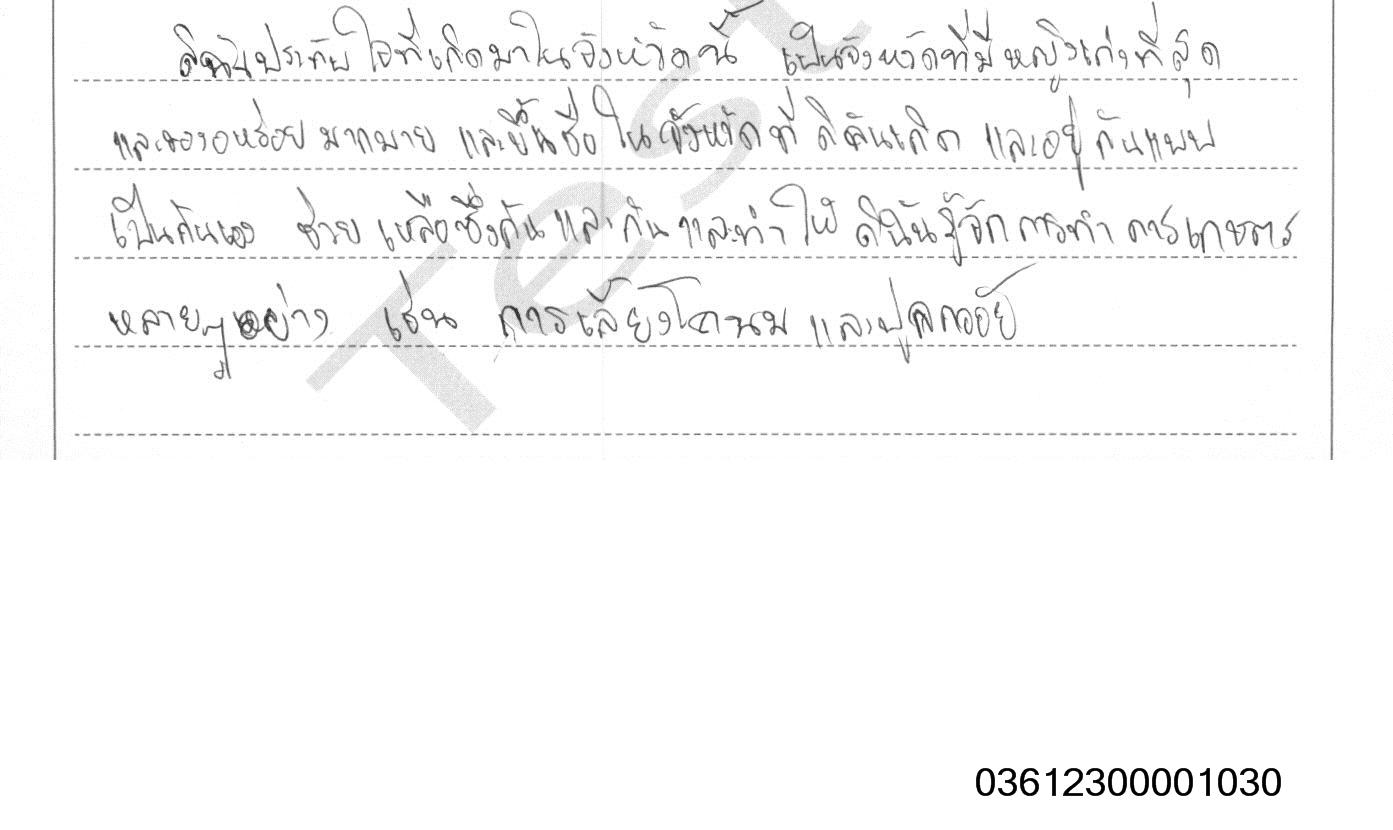 ดิฉันประทับใจที่เกิดมาในจังหวัดนี้ เป็นจังหวัดที่มีหญิงเก่งที่สุด
และของอหร่อยมากมาย และขึ้นชื่อในจังหวัดที่ดิฉันเกิด และอยู่กันแบบ
เป็นกันเอง ช่วยเหลือซึ่งกันและกันและทำให้ดิฉันรู้จักการทำการเกษตร
หลายๆอย่าง เช่น การเลี้ยงโคนม และปลูกออ้ย
Test
03612300001030